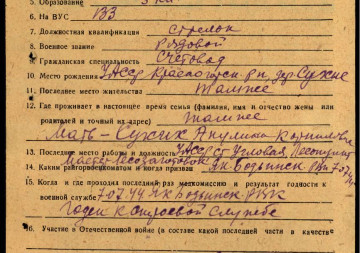 5. Образование 5 кл.
6. На ВУС ВЗ
7. Должностная квалификация стрелок
8. Военное звание рядовой
9. Гражданская специальность Счетовод
10. Место рождения УАССР Красногорск р-н, дер Сухие
11. Последнее место жительства Там же
12. Где проживает в настоящее время семья (фамилия, имя и отчество жены или
родителей и точный их адрес) Там же
Мать - Сухих Анулиан Корниловна
13. Последнее место работы и должность УАССР ст Угловая, Леспункт
Мастер Лесозаготовок
14. Каким райгорвоенкоматом и когда призван Як Бодьинск. РВК 7.07.44
15. Когда и где проходил последний раз медкомиссию и результат годности к
военной службе 7.07.44 Як Бодьинск РВК
Годен к строевой службе
16. Участие в Отечественной войне (в составе какой последней части в качестве